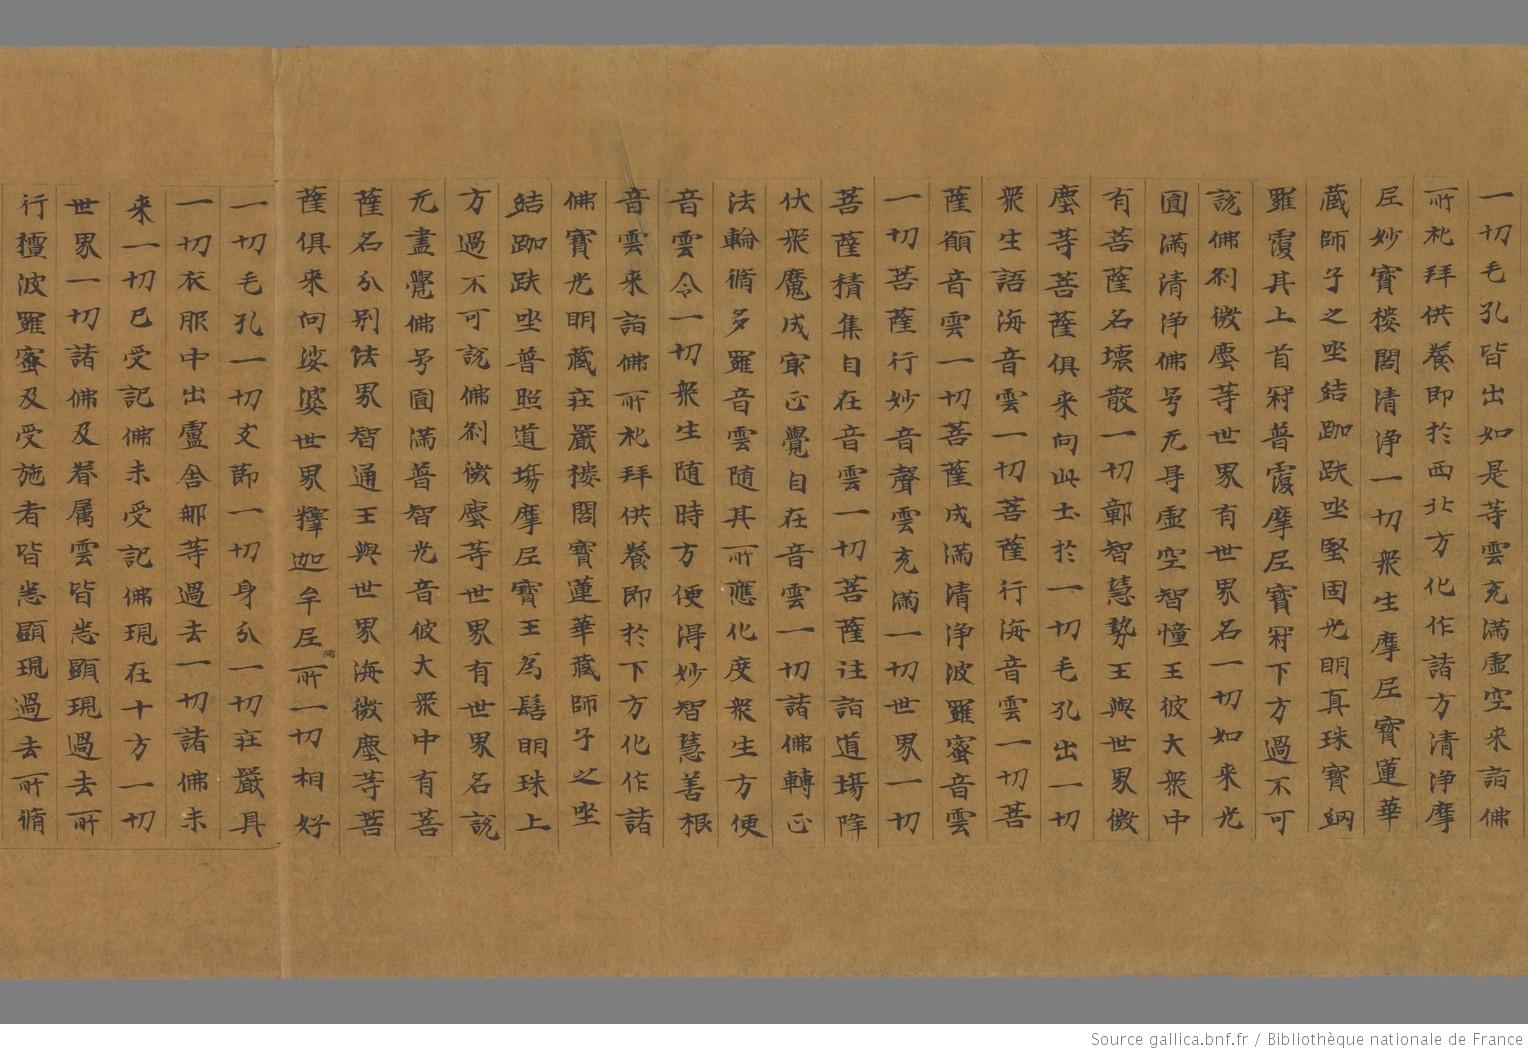 一切毛孔皆出如是等雲充滿虛空来詣佛
所礼拜供養即於西北方化作諸方清淨摩
尼妙寳樓閣清淨一切衆生摩尼寳蓮華
藏師子之坐結跏趺坐堅固光明真珠寳網
羅覆其上首冠普覆摩尼寳冠下方過不可
說佛刹微塵等世界有世界名一切如来光
圓滿清淨佛号无㝵虛空智幢王彼大衆中
有菩薩名壊散一切鄣智慧勢王與世界微
塵等菩薩俱来向此土於一切毛孔出一切
衆生語海音雲一切菩薩行海音雲一切菩
薩願音雲一切菩薩成滿清淨波羅蜜音雲
一切菩薩行妙音聲雲充滿一切世界一切
菩薩積集自在音雲一切菩薩往詣道場降
伏衆魔成㝡正覺自在音雲一切諸佛轉正
法輪脩多羅音雲随其所應化度衆生方便
音雲令一切衆生随時方便得妙智慧善根
音雲来詣佛所礼拜供養即於下方化作諸
佛寳光明藏莊嚴樓閣寳蓮華藏師子之坐
結跏趺坐普照道場摩尼寳王為髻明珠上
方過不可說佛刹微塵等世界有世界名說
无盡覺佛号圓滿普智光音彼大衆中有菩
薩名分别法界智通王與世界海微塵等菩
薩俱来向娑婆世界釋迦牟尼佛所一切相好
一切毛孔一切支節一切身分一切莊嚴具
一切衣服中出盧舍那等過去一切諸佛未
来一切已受記佛未受記佛現在十方一切
世界一切諸佛及眷属雲皆悉顯現過去所
行檀波羅蜜及受施者皆悉顯現過去所脩
Source gallica.bnf.fr / Bibliothèque nationale de France